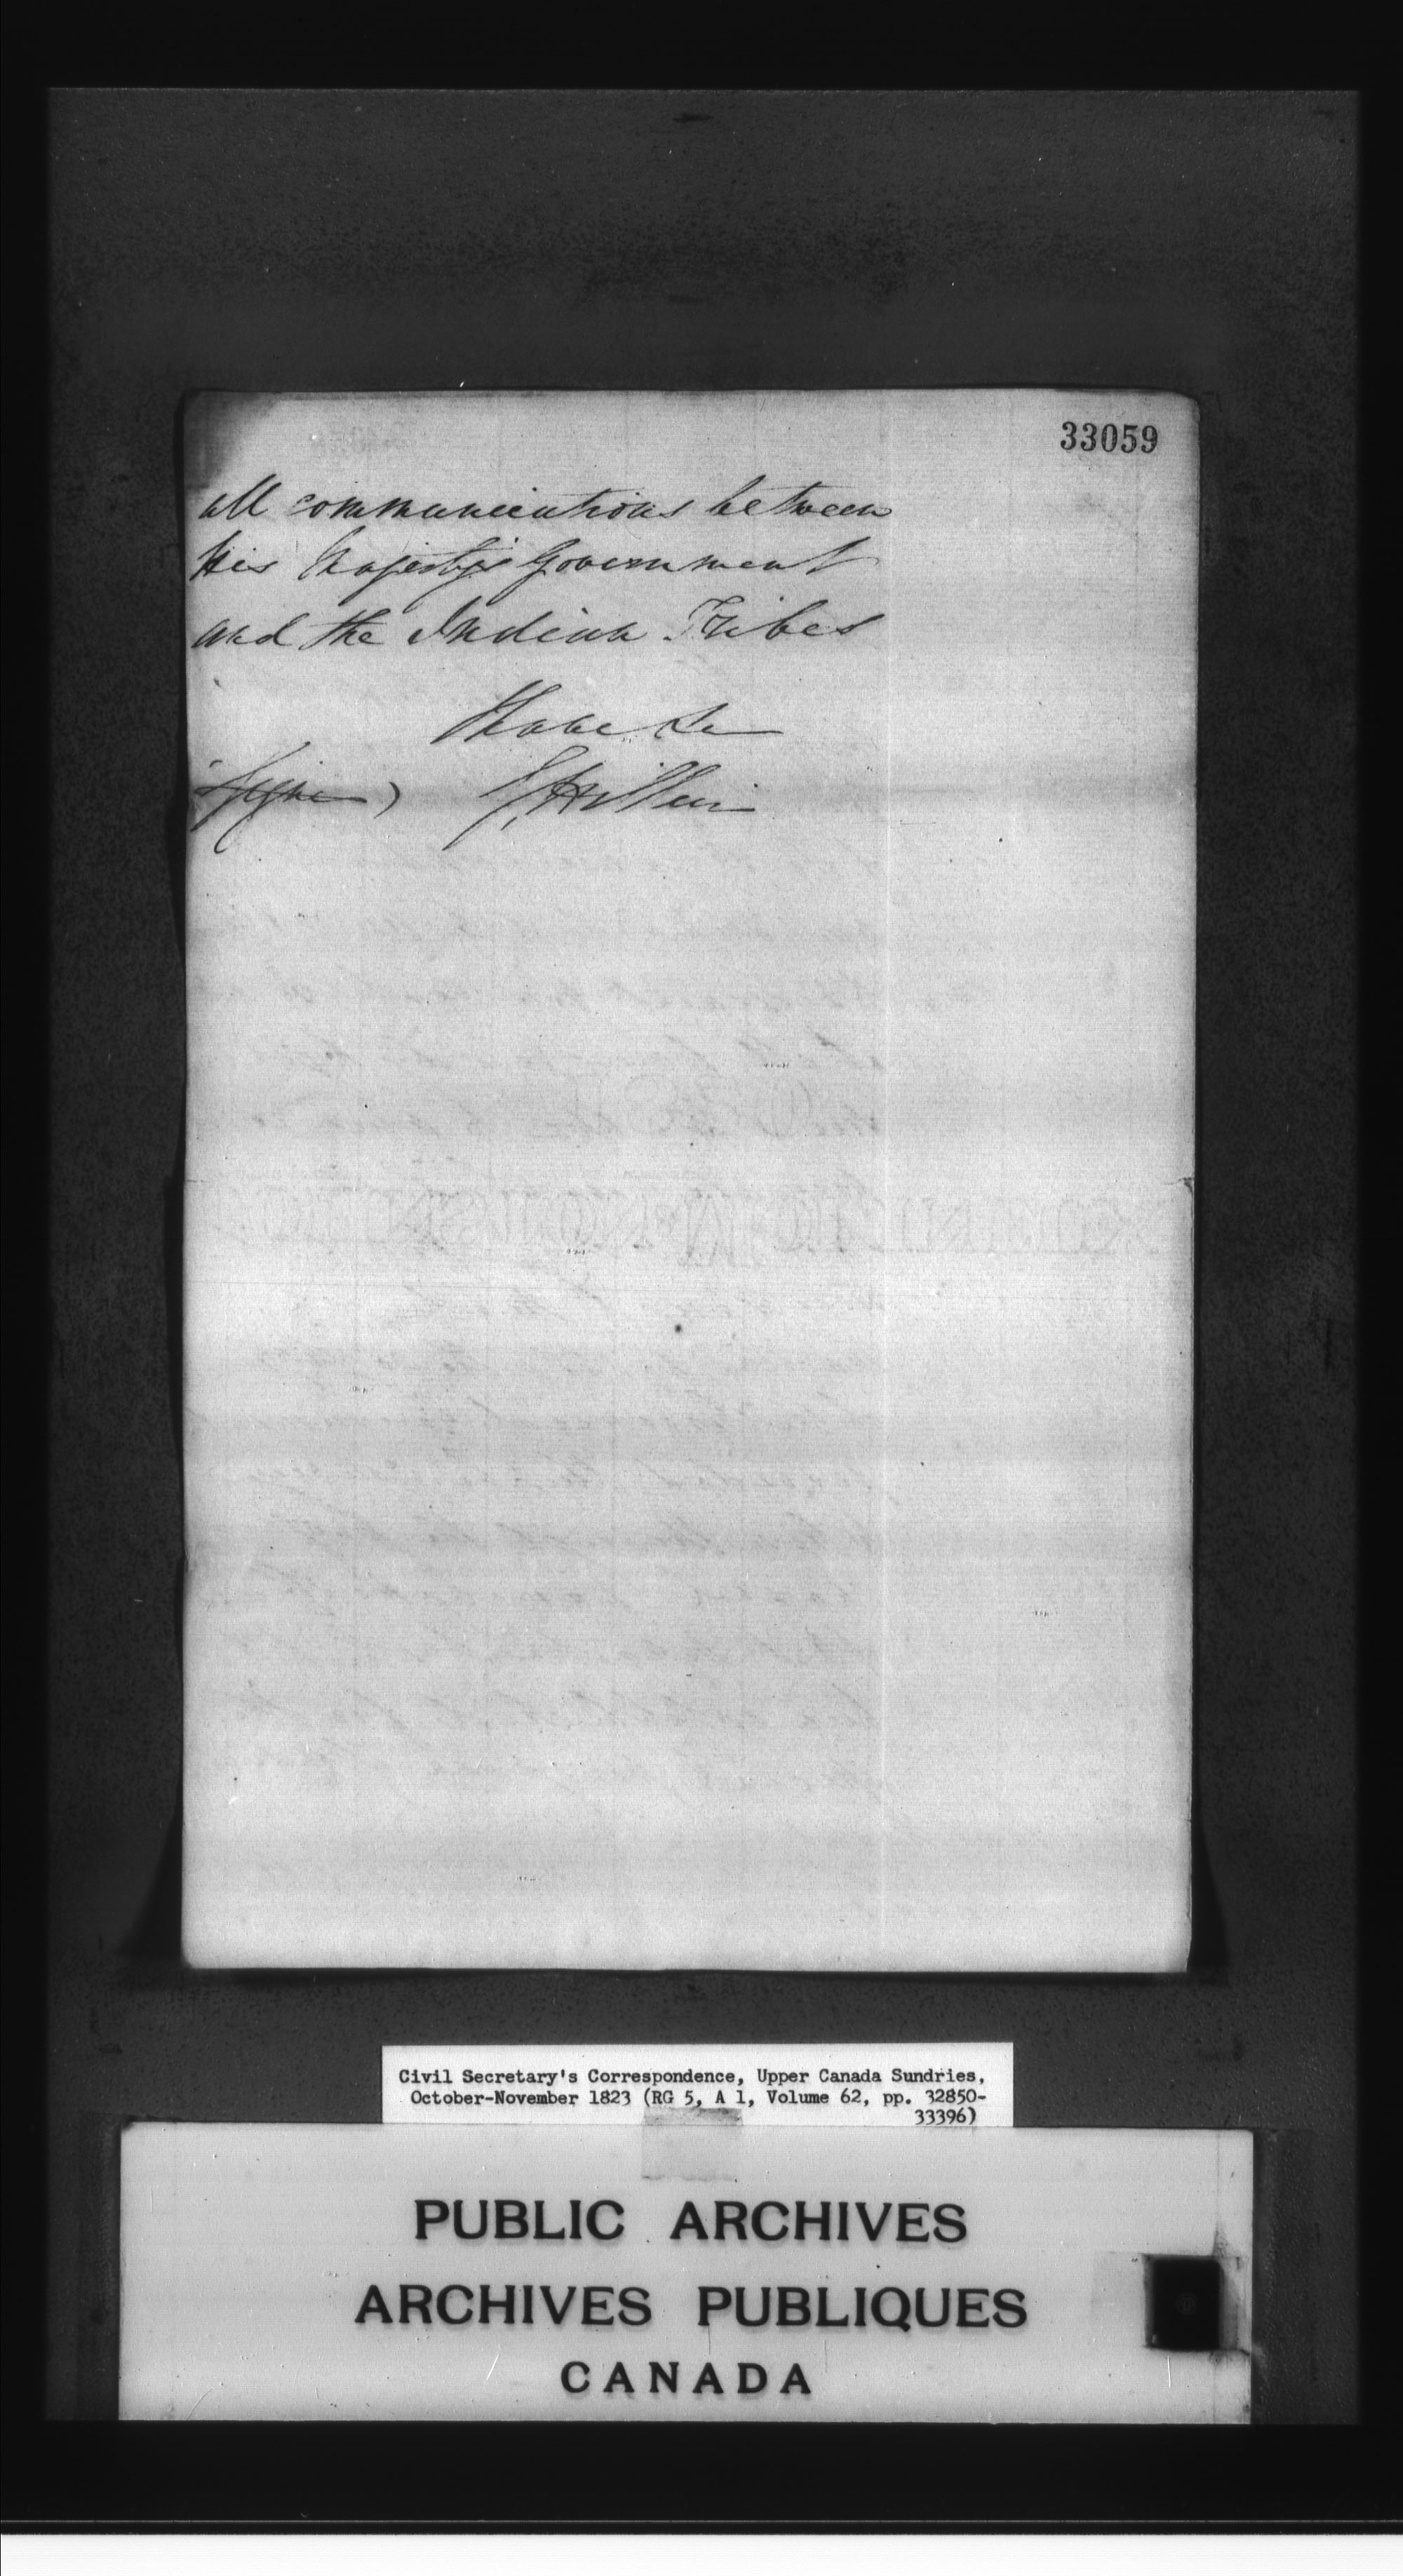 33059
all communications between
His Majesty's Government
and the Indian Tribes
I have &c
Signed)
Civil Secretary's Correspondence, Upper Canada Sundries,
October-November 1823 (RG 5, A 1, Volume 62, pp. 32850-
33396)
PUBLIC ARCHIVES
ARCHIVES PUBLIQUES
CANADA